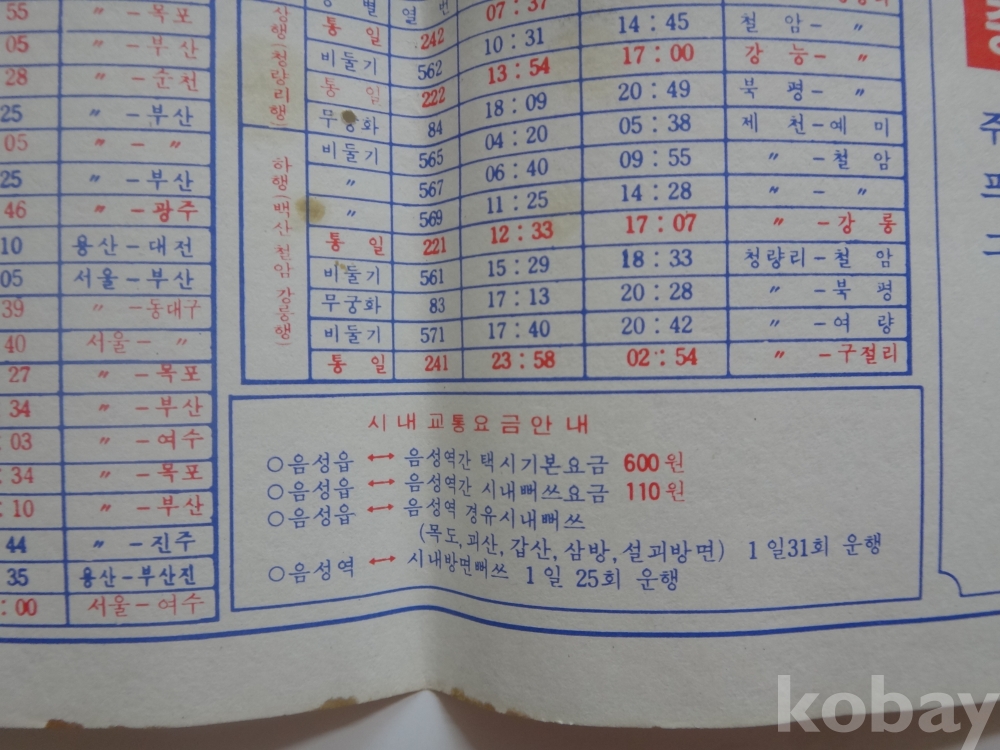 55 〃-목포
05 〃-부산
28 〃-순천
25 〃-부산
05 〃-〃
25 〃-부산
46 〃-광주
10 용산-대전
05 서울-부산
39 〃-동대구
40 서울-〃
27 〃-목포
34 〃-부산
:03 〃-여수
:34 〃-목포
:10 〃-부산
44 〃-진주
35 용산-부산진
:00 서울-여수
상행(청량리행)
별 열 번
통일 242 07:37
비둘기 562 10:31 14:45 철암-〃
통일 222 13:54 17:00 강능-〃
무궁화 84 18:09 20:49 북평-〃
하행(백산 철암 강릉행)
비둘기 565 04:20 05:38 제천-예미
〃 567 06:40 09:55 〃-철암
〃 569 11:25 14:28 〃-〃
통일 221 12:33 17:07 〃-강릉
비둘기 561 15:29 18:33 청량리-철암
무궁화 83 17:13 20:28 〃-북평
비둘기 571 17:40 20:42 〃-여량
통일 241 23:58 02:54 〃-구절리
시내교통요금안내
○음성읍 ↔ 음성역간 택시기본요금 600원
○음성읍 ↔ 음성역간 시내뻐쓰요금 110원
○음성읍 ↔ 음성역 경유시내뻐쓰
(목도,괴산,갑산,삼방,설괴방면) 1일31회 운행
○음성역 ↔ 시내방면뻐쓰 1일 25회 운행
주
프
그
kobay